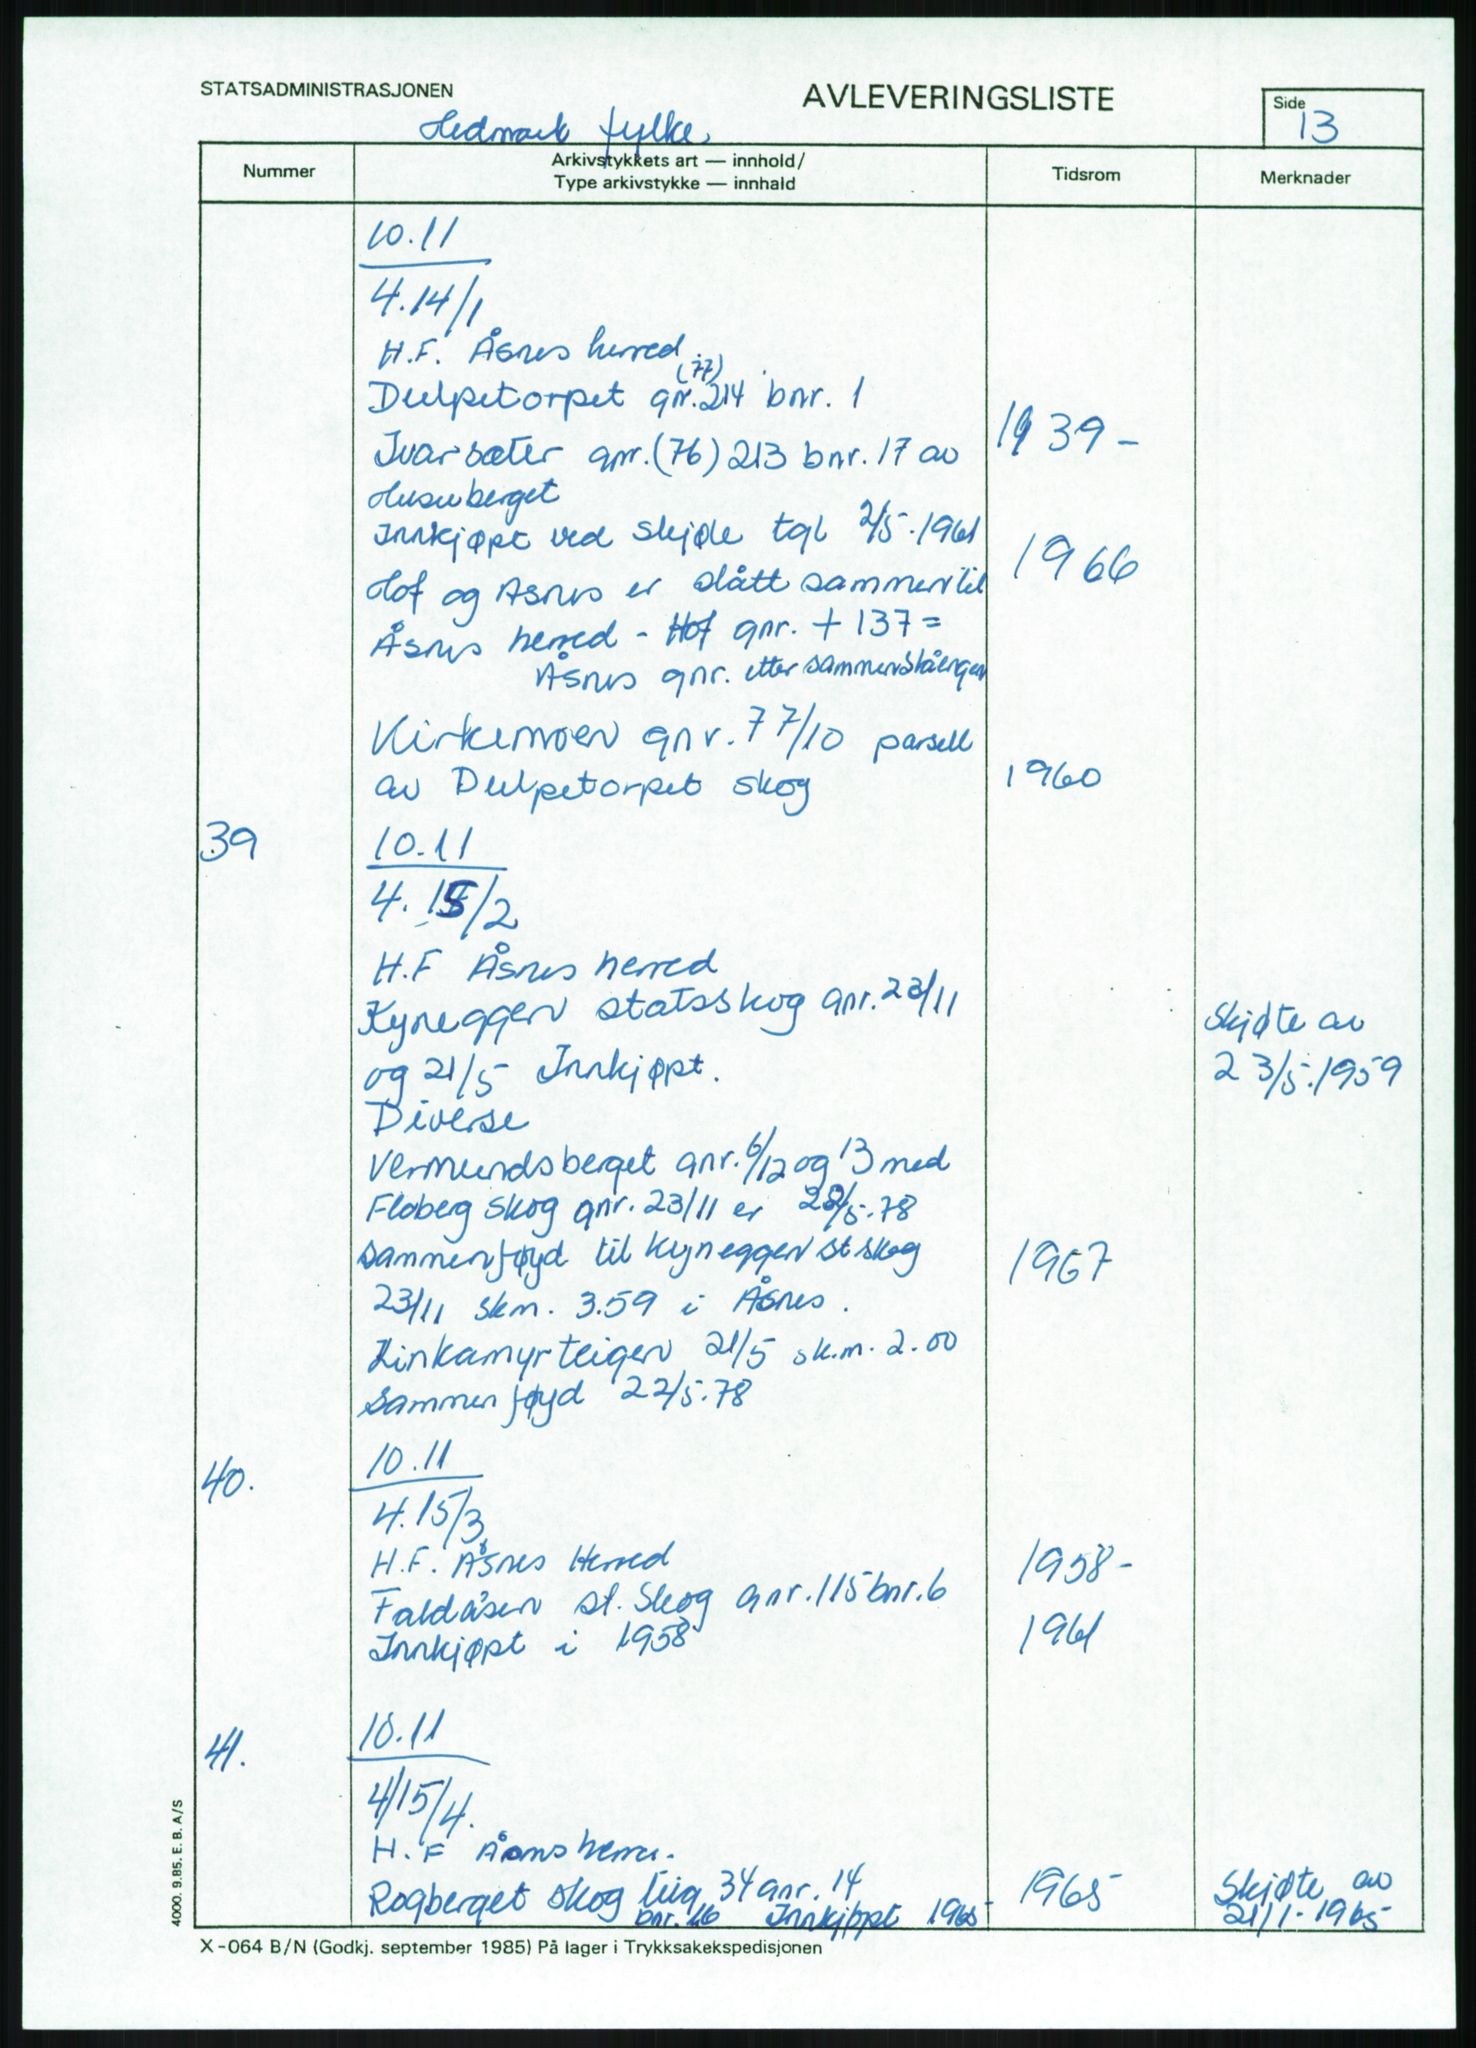 STATSADMINISTRASJONEN
AVLEVERINGSLISTE
Side
13
Hedmark fylke
Nummer
Arkivstykkets art — innhold/
Type arkivstykke — innhald
Tidsrom
Merknader
10.11
4.14/1
H.F. Åsnes herred
(77)
Dulpetorpet gnr. 214 bnr. 1
1939-
Ivarsæter gnr. (76) 213 bnr. 17 av
Husuberget
Innkjøpt ved skjøte tgl 2/5.1961
1966
Hof og Åsnes er slått sammen til
Åsnes herred - Hof gnr. + 137 =
Åsnes gnr. etter sammenslåingen
Kirkemoen gnr. 77/10 parsell
av Dulpetorpet skog
1960
39
10.11
4.15/2
H.F Åsnes herred
Kyneggen statsskog gnr. 23/11
Skjøte av
og 21/5 Innkjøpt.
23/5.1959
Diverse
Vermundsberget gnr. 6/12 og 13 med
Floberg skog gnr. 23/11 er 22/5.78
sammenføyd til Kyneggen st skog
1967
23/11 skm. 3.59 i Åsnes.
Linkamyrteigen 21/5 sk.m. 2.00
sammenføyd 22/5.78
40.
10.11
4.15/3
H.F. Åsnes Herred
1958-
Faldåsen st. Skog gnr. 115 bnr. 6
Innkjøpt i 1958
1961
41.
10.11
4/15/4.
H.F Åsnes herre.
Rogberget skog lüg 34 gnr. 14
1965
Skjøte av
bnr. 16 Innkjøpt 1965
21/1-1965
4000. 9.85. E. B. A/S
X-064 B/N (Godkj. september 1985) På lager i Trykksakekspedisjonen